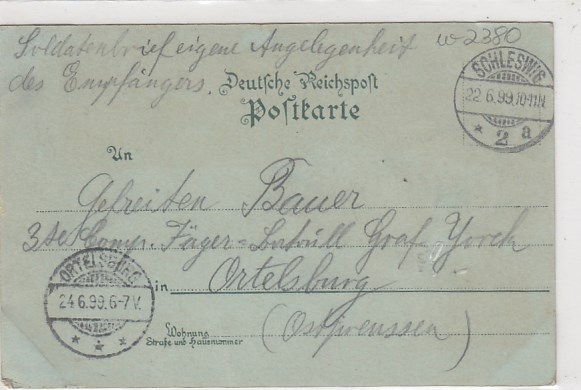 Soldatenbrief eigene Angelegenheit
des Empfängers.
w-2380
Deutsche Reichspost
Postkarte
SCHLESWIG
22.6.99.10-11N.
* 2 a
An
Gefreiten Bauer
3te Comp. Jäger-Bataill Graf Yorck
in Ortelsburg
(Ostpreussen)
ORTELSBURG
24.6.99.6-7V.
Wohnung
Straße und Hausnummer